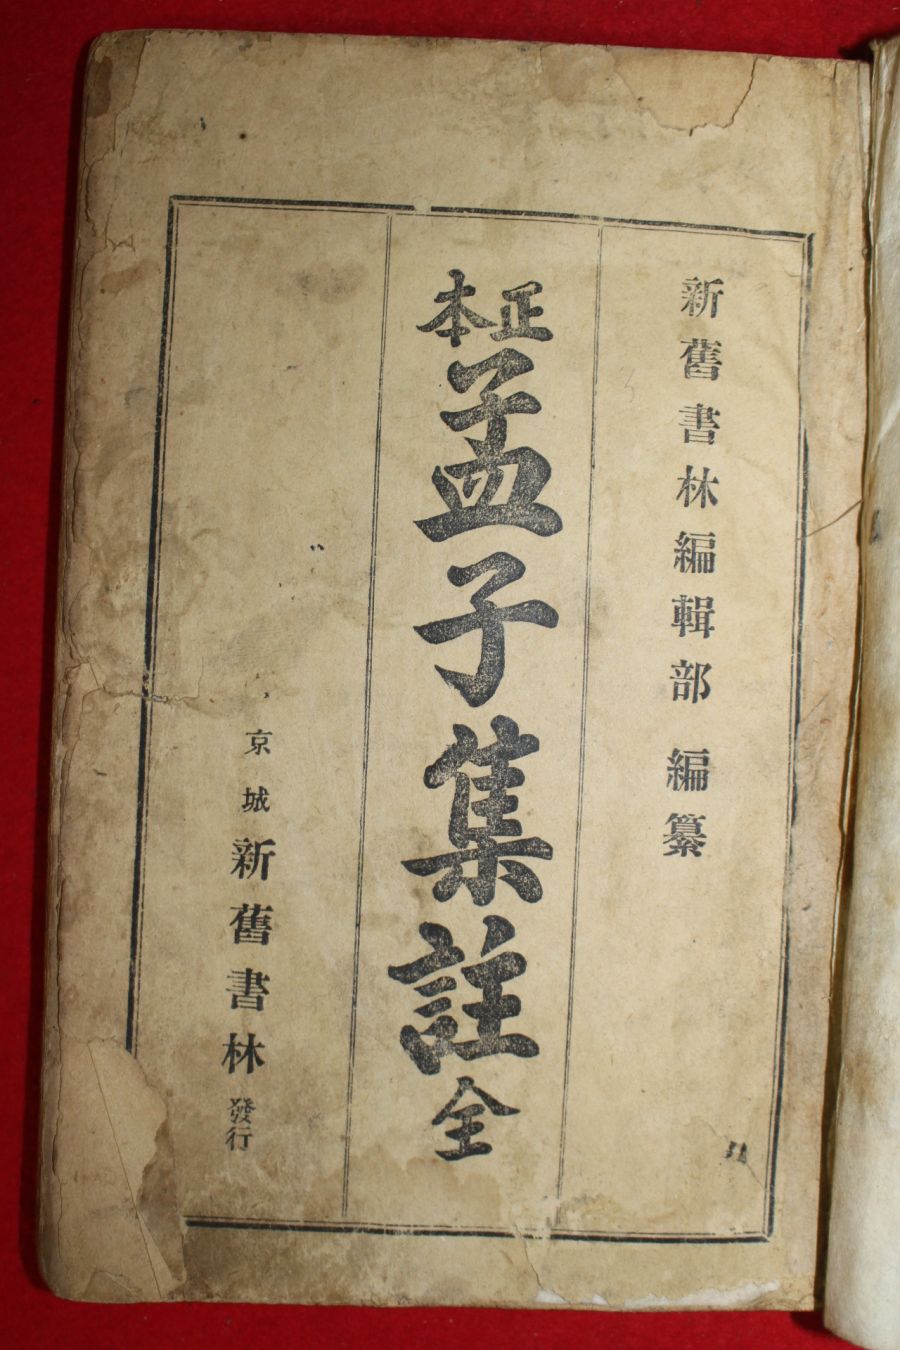 新舊書林編輯部 編纂
正本
孟子集註全
京城新舊書林發行